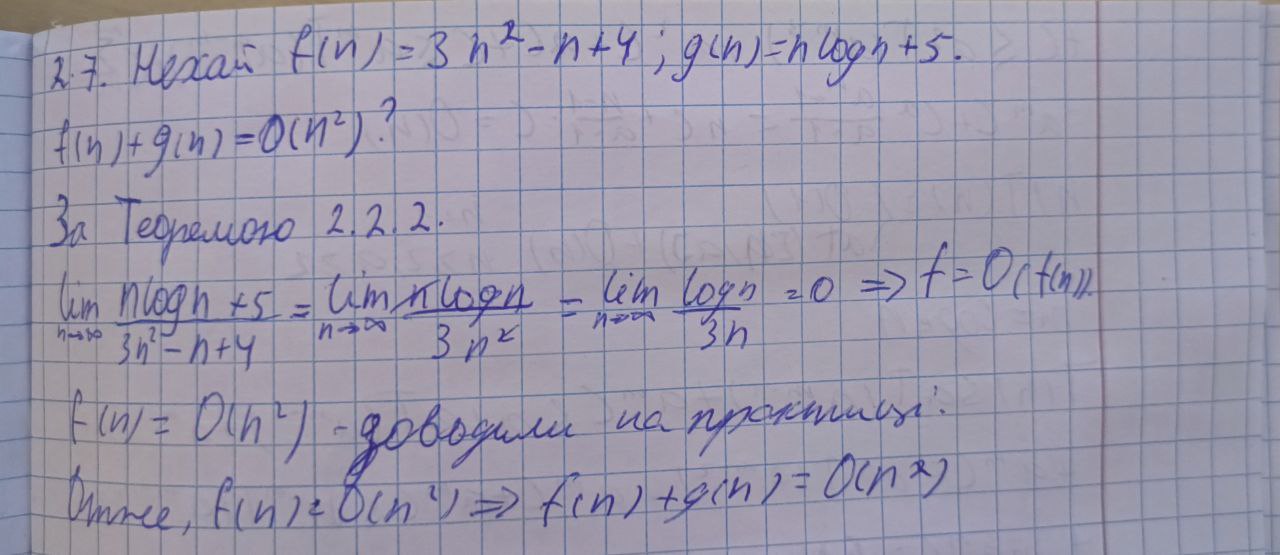 2.7. Нехай f(n) = 3n² - n + 4; g(n) = n log n + 5.
f(n) + g(n) = O(n²)?
За Теоремою 2.2.2.
lim n→∞ (n log n + 5)/(3n² - n + 4) = lim n→∞ (n log n)/(3n²) = lim n→∞ (log n)/(3n) = 0 => f = O(f(n)).
f(n) = O(n²) - доводили на практиці.
Отже, f(n) = O(n²) => f(n) + g(n) = O(n²)